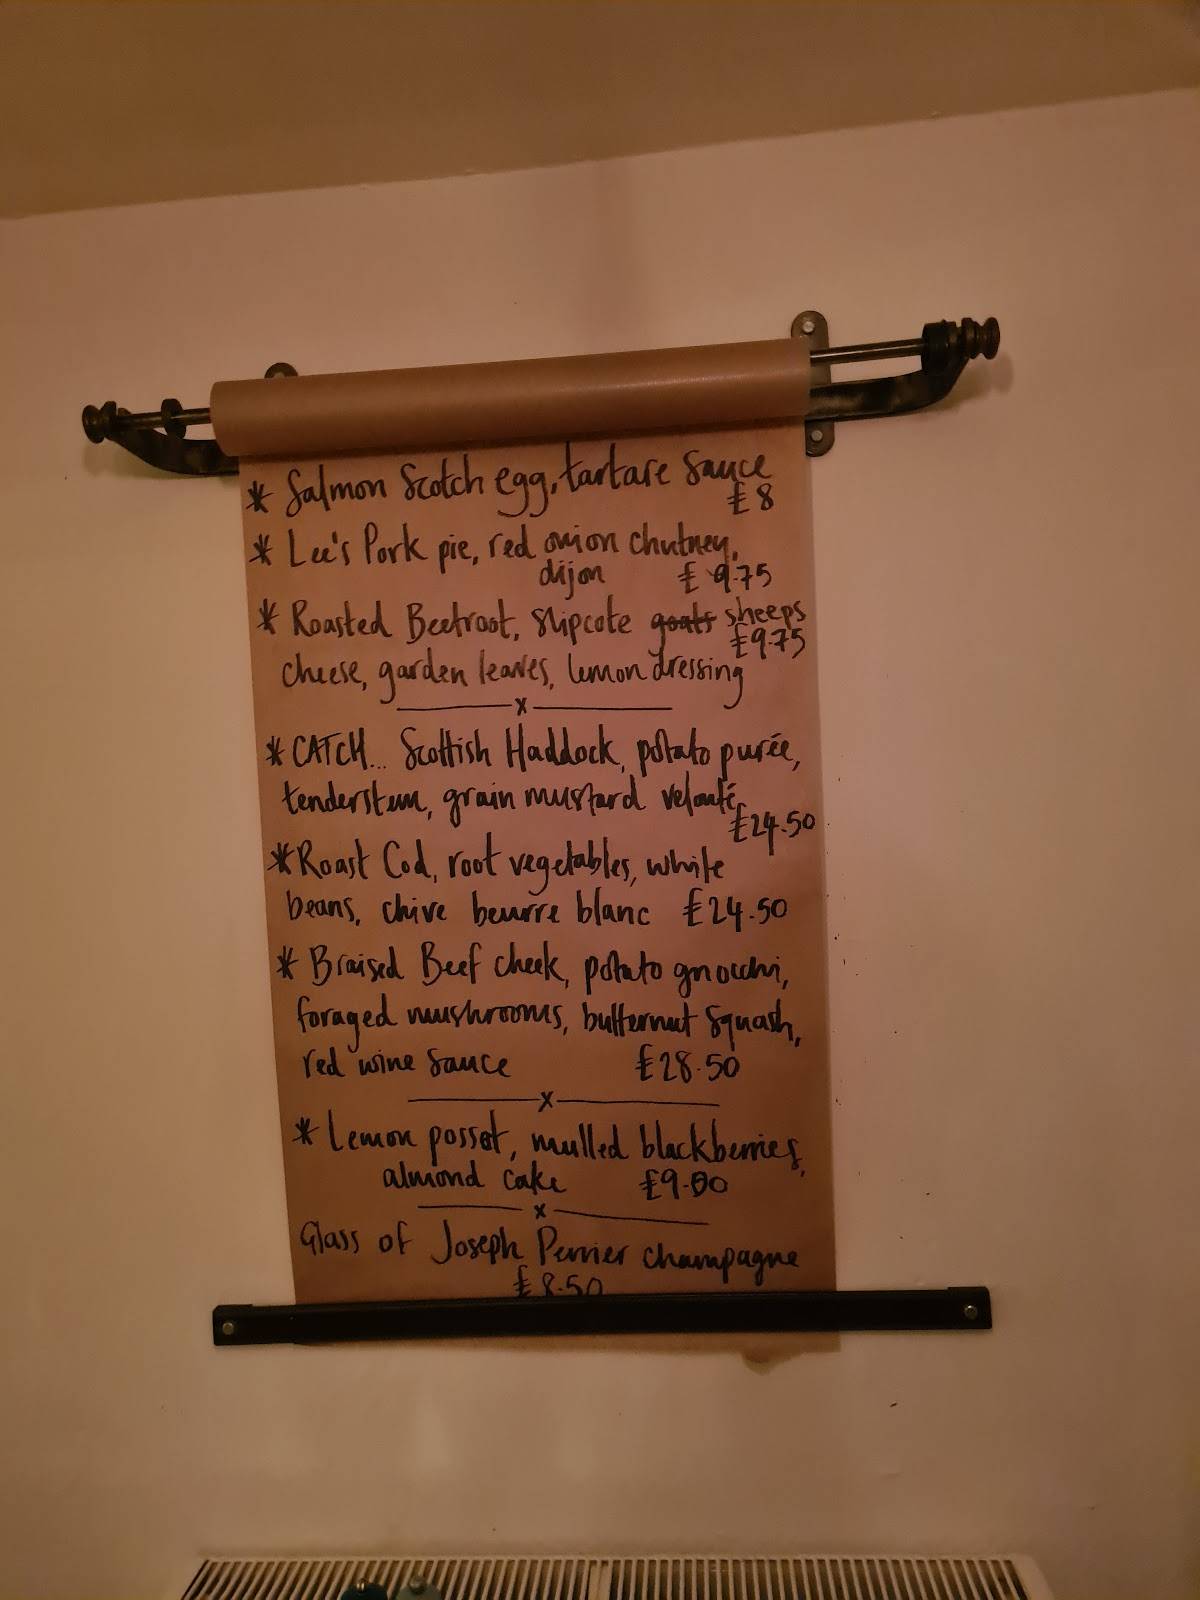 * Salmon Scotch egg, tartare sauce
£8
* Lee's Pork pie, red onion chutney,
dijon £9.75
* Roasted Beetroot, slipcote goats sheeps
£9.75
cheese, garden leaves, lemon dressing
x
* CATCH... Scottish Haddock, potato purée,
tenderstem, grain mustard velouté
£24.50
* Roast Cod, root vegetables, white
beans, chive beurre blanc £24.50
* Braised Beef cheek, potato gnocchi,
foraged mushrooms, butternut squash,
red wine sauce £28.50
x
* Lemon posset, mulled blackberries,
almond cake £9.00
x
Glass of Joseph Perrier champagne
£8.50